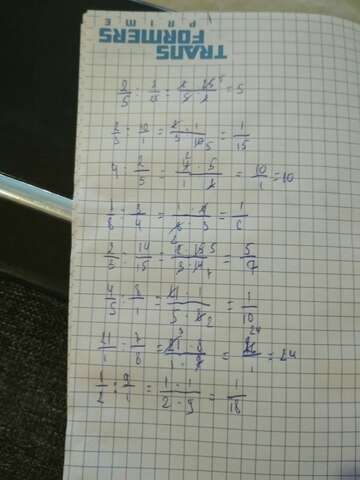 TRANS
FORMERS
PRIME
2/3 : 2/15 = 2·15/3·2 = 5
2/3 : 10/1 = 2·1/3·10 = 1/15
4 : 2/5 = 4·5/1·2 = 10/1 = 10
1/8 : 3/4 = 1·4/8·3 = 1/6
2/3 : 14/15 = 2·15/3·14 = 5/7
4/5 : 8/1 = 4·1/5·8 = 1/10
21/1 : 7/8 = 21·8/1·7 = 24/1 = 24
1/2 : 9/1 = 1·1/2·9 = 1/18